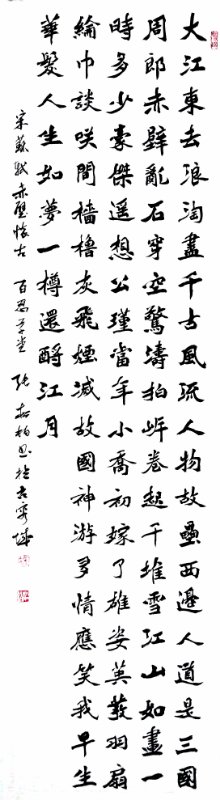 大江東去浪淘盡千古風流人物故壘西邊人道是三國
周郎赤壁亂石穿空驚濤拍岸卷起千堆雪江山如畫一
時多少豪傑遙想公瑾當年小喬初嫁了雄姿英發羽扇
綸巾談咲間檣櫓灰飛煙滅故國神游多情應笑我早生
華髮人生如夢一樽還酹江月
宋蘇軾赤壁懷古 百忍草堂 張